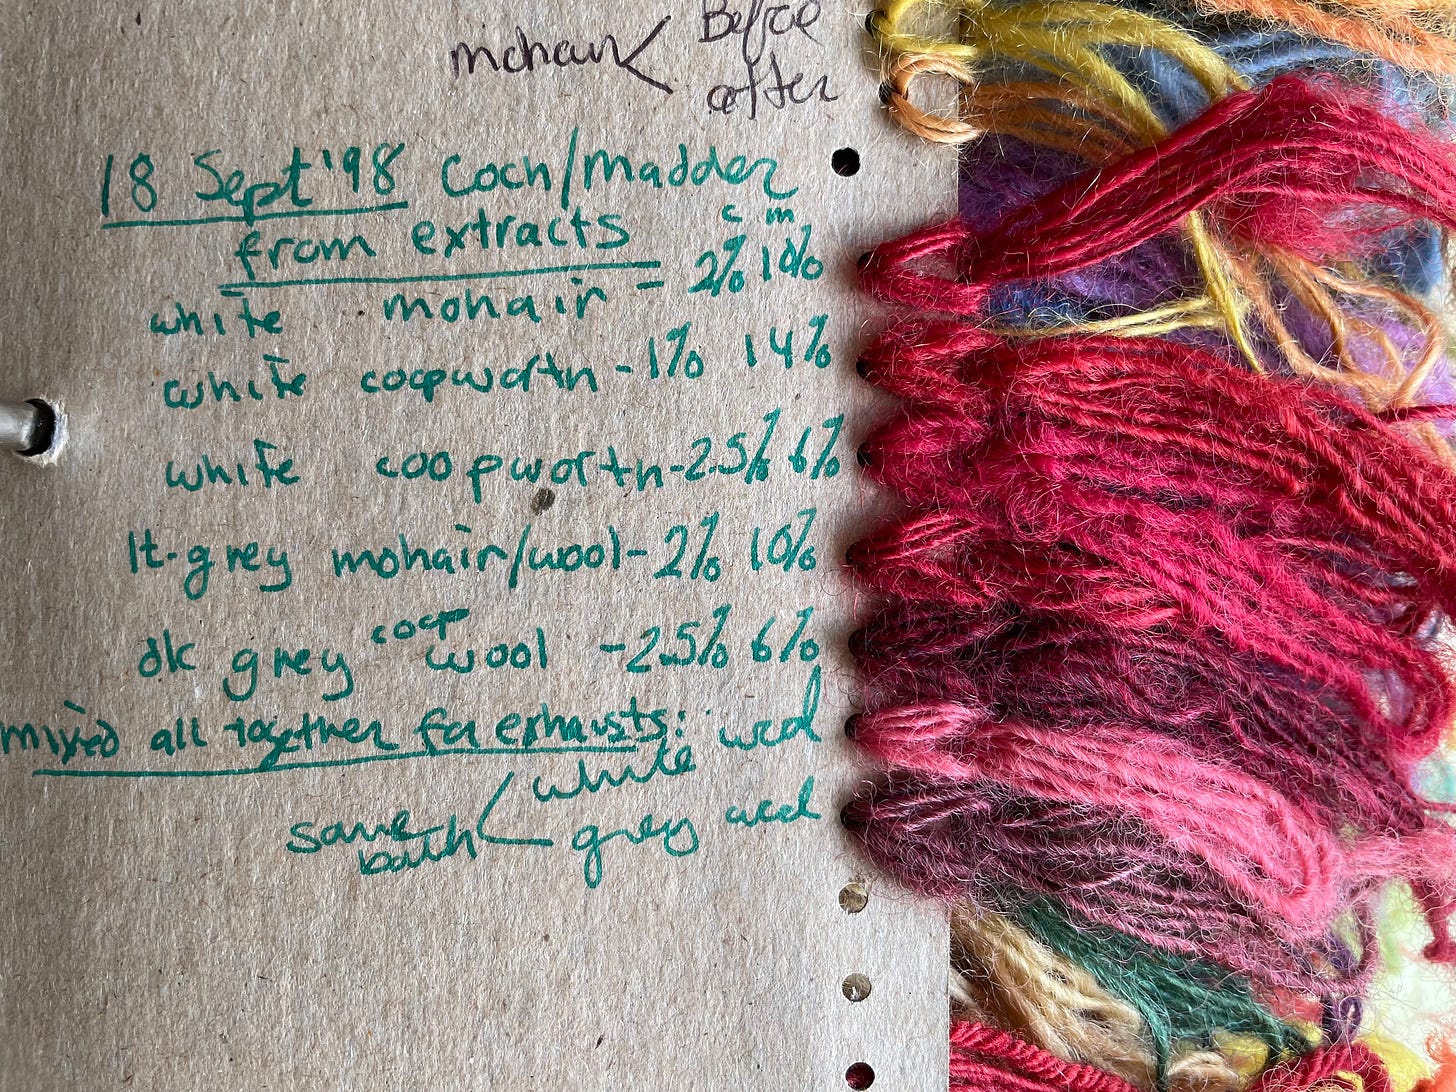 mohair < Before
after
18 Sept '98 Coch/Madder
from extracts
c m
white mohair - 2% 10%
white coopworth - 1% 14%
white coopworth - 2.5% 6%
lt. grey mohair/wool - 2% 10%
dk grey coop wool - 2.5% 6%
mixed all together for exhausts:
same bath < white wool
grey wool